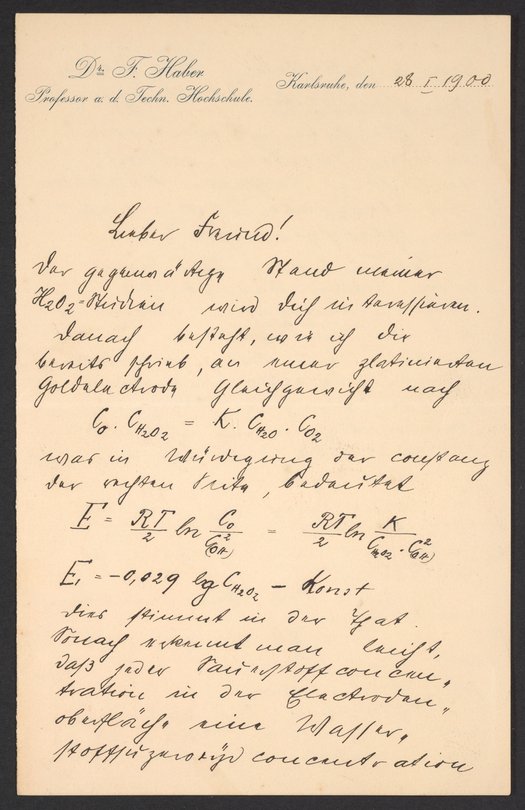 Dr. F. Haber
Professor a. d. Techn. Hochschule.
Karlsruhe, den 28 I 1900
Lieber Freund!
Der gegenwärtige Stand meiner
H2O2=Studien wird Dich interessieren.
Danach besteht, wie ich dir
bereits schrieb, an einer platinierten
Goldelectrode Gleichgewicht nach
C_O · C_H2O2 = K · C_H2O · C_O2
was in Würdigung der Constanz
der rechten Seite, bedeutet
E = RT/2 ln C_O/(C_OH)² = RT/2 ln K/(C_H2O2 · (C_OH)²)
E, = -0,029 lg C_H2O2 - Konst
dies stimmt in der That.
Sonach erkennt man leicht,
daß jeder Sauerstoffconcen„
tration in der Electroden„
oberfläche eine Wasser„
stoffsuperoxyd concentration